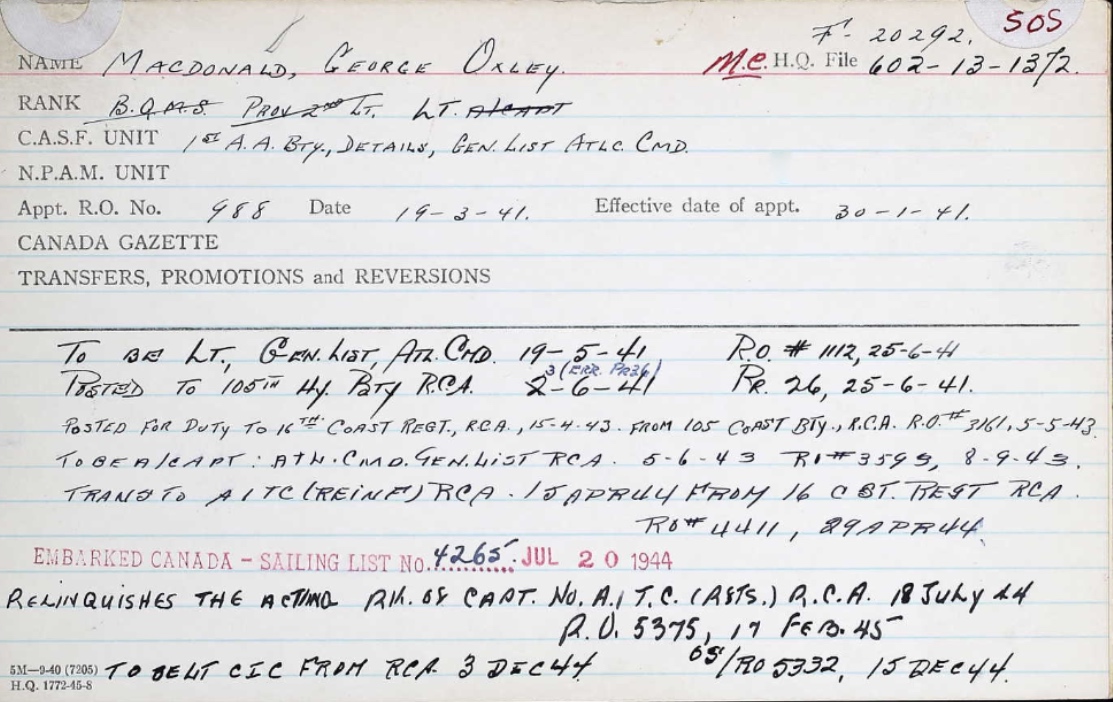 F- 20292. SOS
NAME MACDONALD, GEORGE OXLEY. M.C. H.Q. File 602-13-1372.
RANK B.Q.M.S. PROV 2ND LT. LT. A/CAPT
C.A.S.F. UNIT 1ST A.A. BTY., DETAILS, GEN. LIST ATLC. CMD.
N.P.A.M. UNIT
Appt. R.O. No. 988 Date 19-3-41. Effective date of appt. 30-1-41.
CANADA GAZETTE
TRANSFERS, PROMOTIONS and REVERSIONS
TO BE LT., GEN. LIST, ATL. CMD. 19-5-41 R.O. # 1112, 25-6-41
3 (ERR. PR36)
POSTED TO 105TH HY. BTY R.C.A. 2-6-41 PR. 26, 25-6-41.
POSTED FOR DUTY TO 16TH COAST REGT., R.C.A., 15-4-43. FROM 105 COAST BTY., R.C.A. R.O.# 3161, 5-5-43.
TO BE A/CAPT: ATL. CMD. GEN. LIST RCA. 5-6-43 RO#3593, 8-9-43.
TRANS TO A1 TC (REINF) RCA. 15 APR 44 FROM 16 CST. REGT RCA.
RO# 4411, 29 APR 44.
EMBARKED CANADA - SAILING LIST No. 4265. JUL 20 1944
RELINQUISHES THE ACTING RK. OF CAPT. NO. A.1 T.C. (RFTS.) R.C.A. 18 JULY 44
R.O. 5375, 17 FEB. 45
5M—9-40 (7205) TO BE LT CIC FROM RCA 3 DEC 44. OS/RO 5332, 15 DEC 44.
H.Q. 1772-45-8